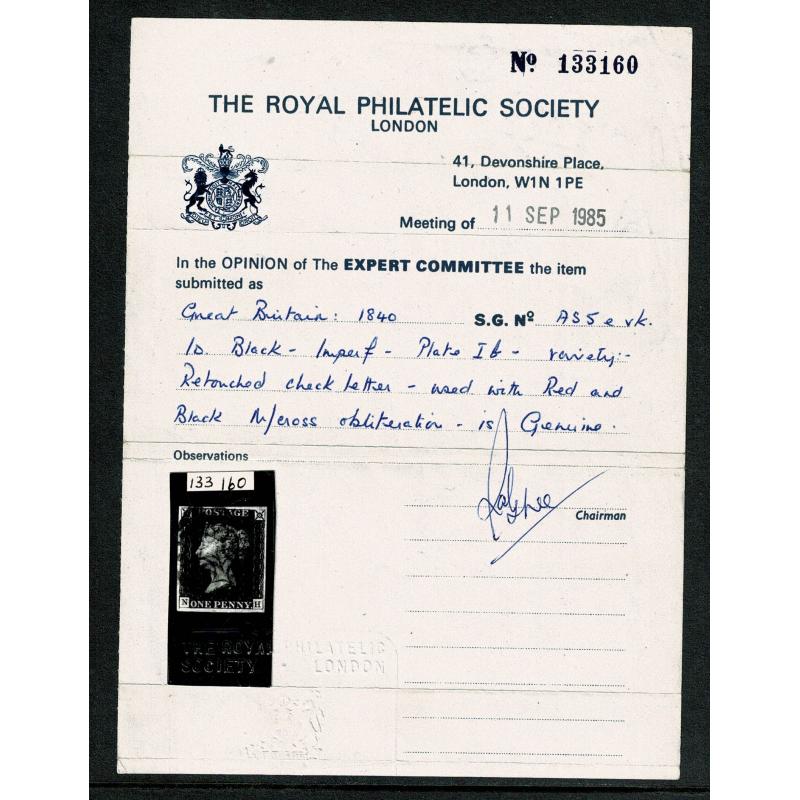 Nº 133160
THE ROYAL PHILATELIC SOCIETY
LONDON
41, Devonshire Place,
London, W1N 1PE
Meeting of 11 SEP 1985
In the OPINION of The EXPERT COMMITTEE the item
submitted as
Great Britain: 1840 S.G. Nº AS5e vk.
1D. Black - Imperf - Plate Ib - variety:-
Retouched check letter - used with Red and
Black M/cross obliteration - is Genuine.
Observations
133 160
POSTAGE
Chairman
N ONE PENNY H
THE ROYAL PHILATELIC
SOCIETY LONDON